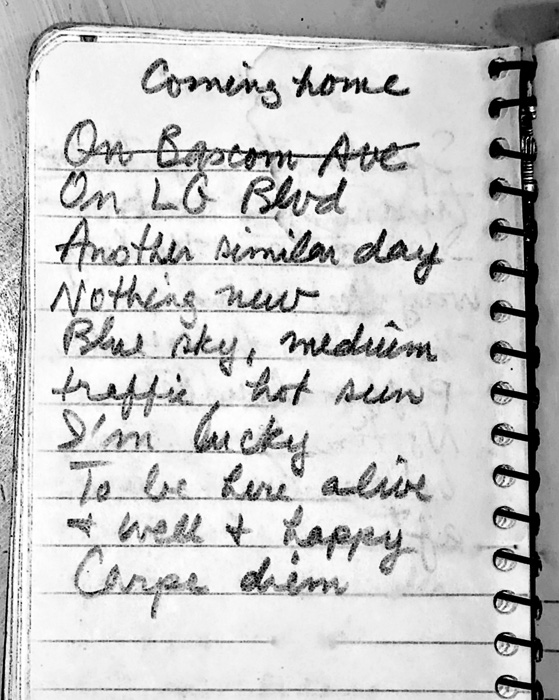 Coming home
On Bascom Ave
On LG Blvd
Another similar day
Nothing new
Blue sky, medium
traffic, hot sun
I'm lucky
To be here alive
+ well + happy
Carpe diem